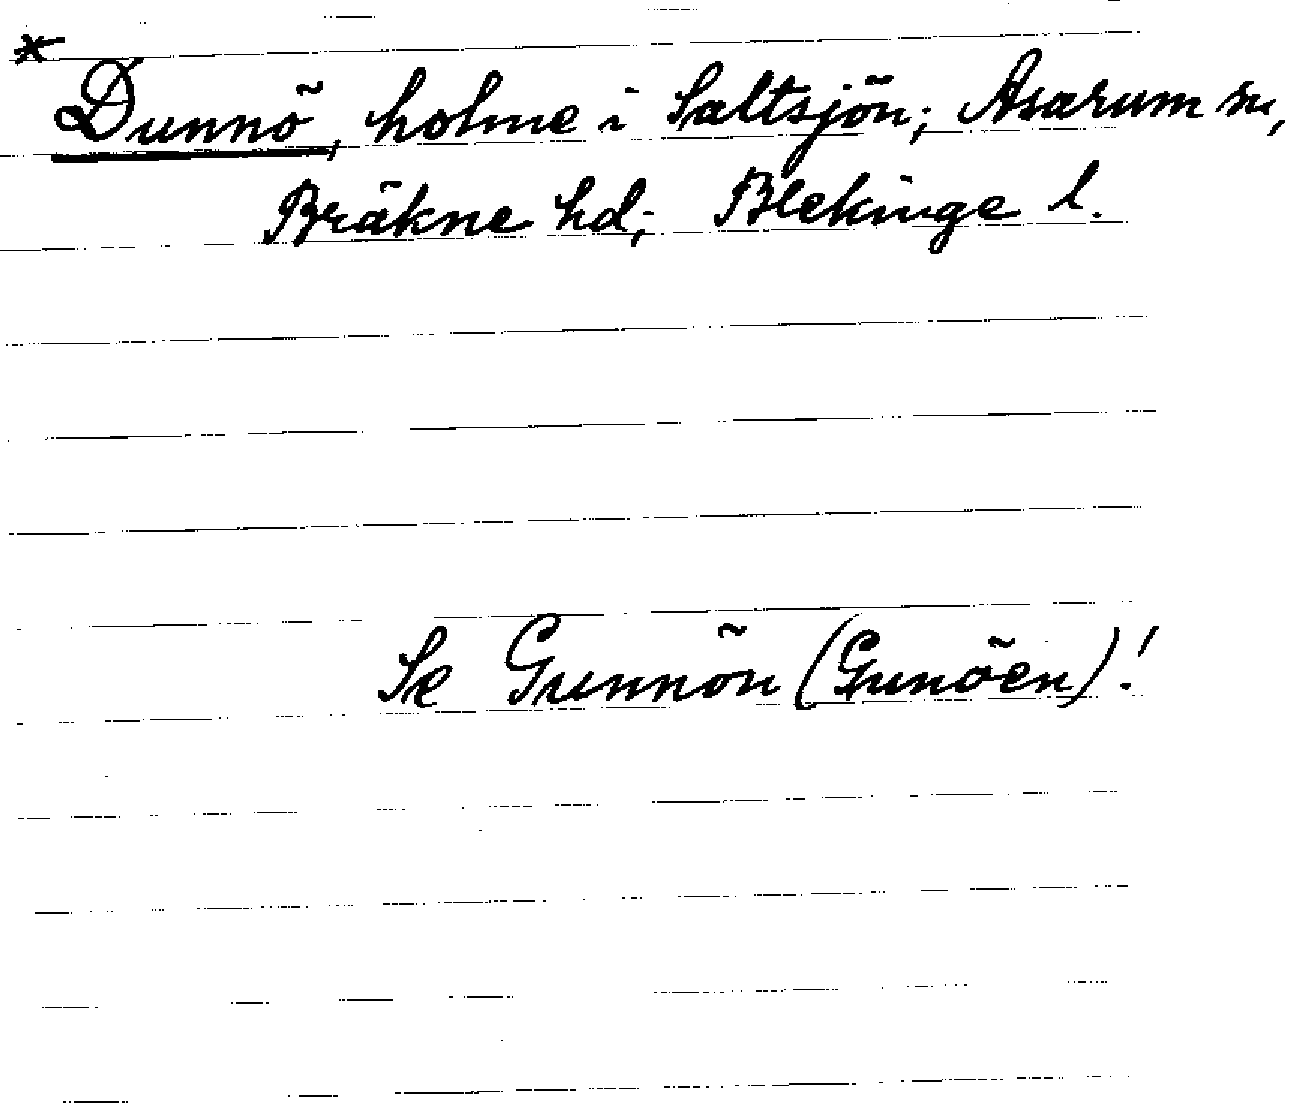 * Dunnö, holme i Saltsjön; Asarum sn,
Bräkne hd; Blekinge l.
Se Gunnön (Gunöen)!